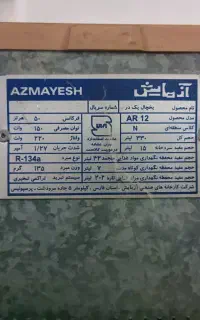 AZMAYESH آزمایش
نام محصول یخچال یک در شماره سریال
مدل محصول AR 12 فرکانس ۵۰ هرتز
کلاس منطقه‌ای N توان مصرفی ۱۵۰ وات
حجم کل ۳۳۰ لیتر ولتاژ ۲۲۰ ولت
حجم مفید سردخانه ۱۵ لیتر شدت جریان ۱/۲۷ آمپر
حجم مفید محفظه نگهداری مواد غذایی نوع مبرد R-134a
حجم مفید محفظه نگهداری کوتاه مدت وزن مبرد ۱۳۵ گرم
حجم مفید محفظه نگهداری مواد ۳۰۲ سیستم تبرید تراکمی تبخیری
شرکت کارخانه های صنعتی آزمایش، استان فارس، کیلومتر ۵ جاده مرودشت، پرسپولیس